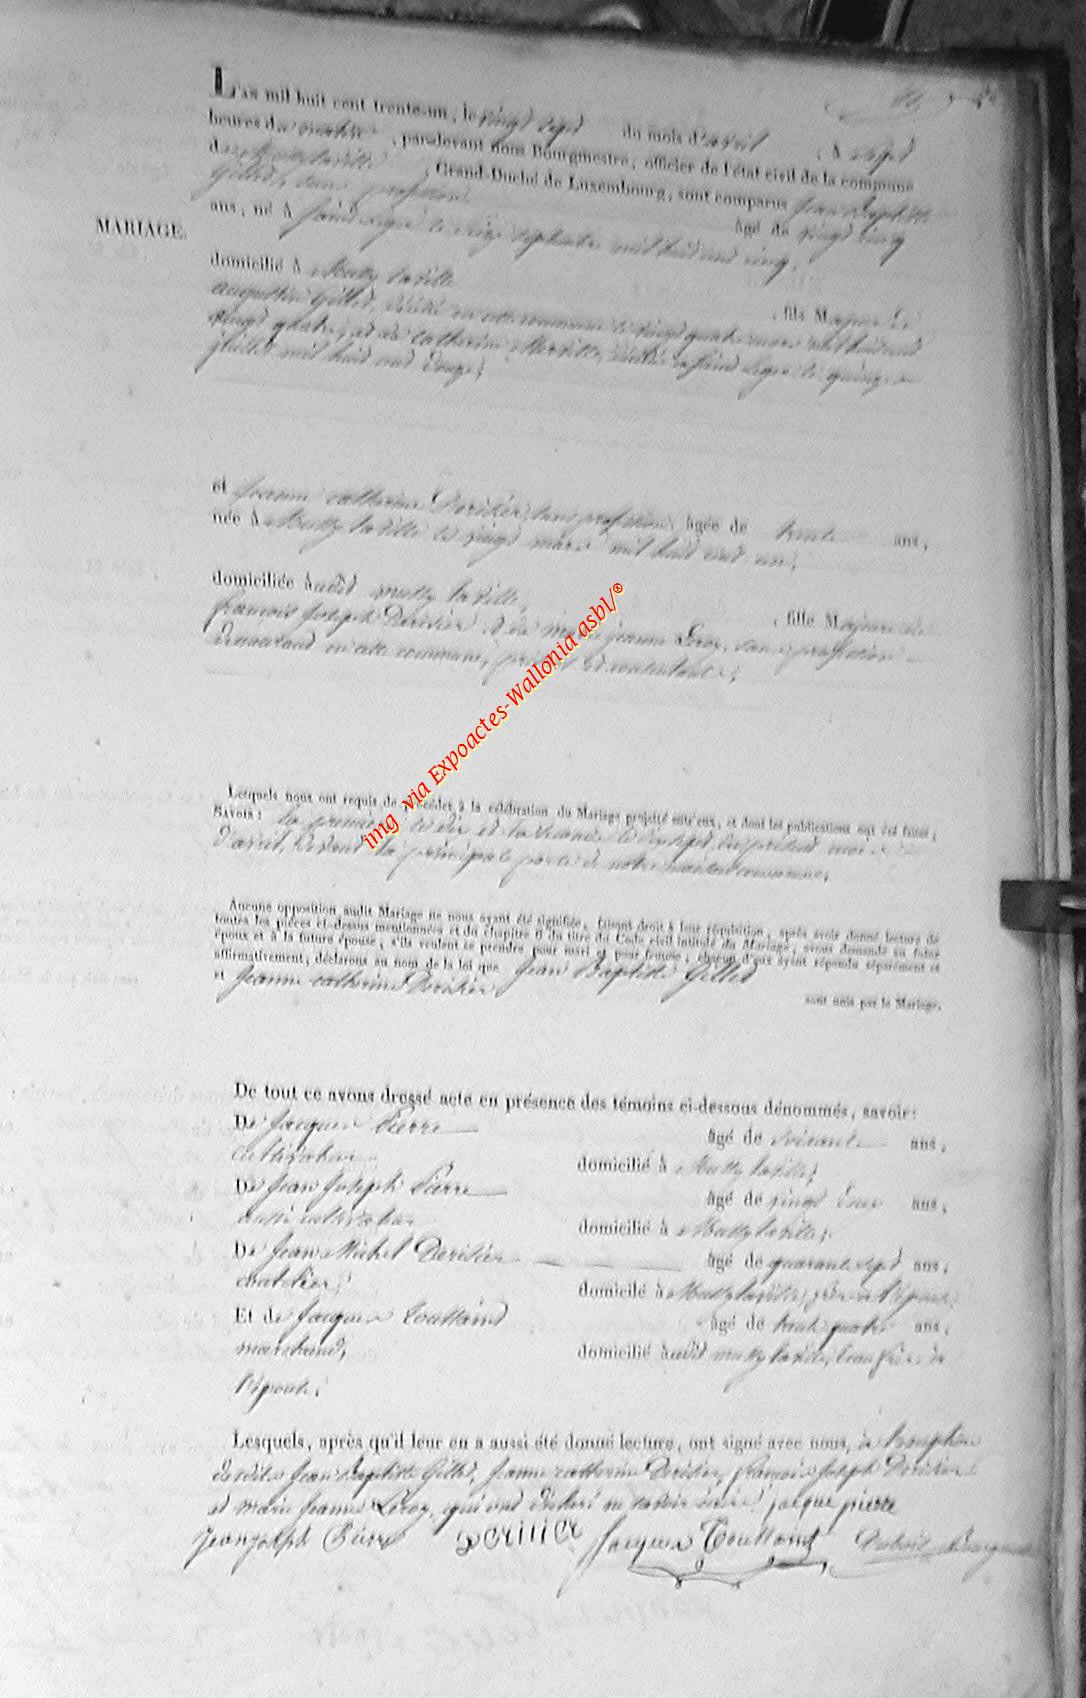 L'an mil huit cent trente-un, le vingt sept du mois d'avril, à sept
heures du matin, par-devant nous Bourgmestre, officier de l'état civil de la commune
de Mussy la ville, Grand-Duché de Luxembourg, sont comparus Jean Baptiste
Gillet, sans profession, âgé de vingt cinq
MARIAGE.
ans, né à Saint Leger le septembre mil huit cent cinq,
domicilié à Mussy la ville, fils Majeur de
Augustin Gillet, décédé en cette commune le vingt quatre mars mil huit cent
vingt quatre, et de Catherine décédée à Saint Leger le quinze
juillet mil huit cent douze;
et Jeanne catherine Deritier, sans profession, âgée de trente ans,
née à Mussy la ville le vingt mars mil huit cent un,
domiciliée à udit mussy la ville, fille Majeure de
françois Joseph Deritier et de marie jeanne Leroy, sans profession
demeurant en cette commune, présents et consentants;
Lesquels nous ont requis de procéder à la célébration du Mariage projeté entr'eux, et dont les publications ont été faites,
Savoir: la première le dix et la seconde le dix sept du présent mois
d'avril, devant la principale porte de notre maison commune;
Aucune opposition audit Mariage ne nous ayant été signifiée, faisant droit à leur réquisition, après avoir donné lecture de
toutes les pièces ci-dessus mentionnées et du chapitre 6 du titre du Code civil intitulé du Mariage, avons demandé au futur
époux et à la future épouse, s'ils veulent se prendre pour mari et pour femme; chacun d'eux ayant répondu séparément et
affirmativement, déclarons au nom de la loi que Jean Baptiste Gillet
et Jeanne catherine Deritier
sont unis par le Mariage.
De tout ce avons dressé acte en présence des témoins ci-dessous dénommés, savoir:
De Jacques Pierre âgé de soixante ans,
cultivateur domicilié à Mussy la ville;
De Jean Joseph Pierre âgé de vingt deux ans,
aussi cultivateur domicilié à Mussy la ville;
De Jean Michel Deritier âgé de quarante sept ans,
domicilié à Mussy la ville, frère de l'épouse;
Et de Jacques Toussaint âgé de trente quatre ans,
marchand, domicilié à udit mussy la ville, beau frère de
l'épouse;
Lesquels, après qu'il leur en a aussi été donné lecture, ont signé avec nous, à l'exception
desdits Jean Baptiste Gillet, Jeanne catherine Deritier, françois Joseph Deritier
et marie jeanne Leroy, qui ont déclaré ne savoir écrire. jacque pierre
Jean joseph Pierre Deritier Jacques Toussaint
img via Expoactes-Wallonia asbl/®